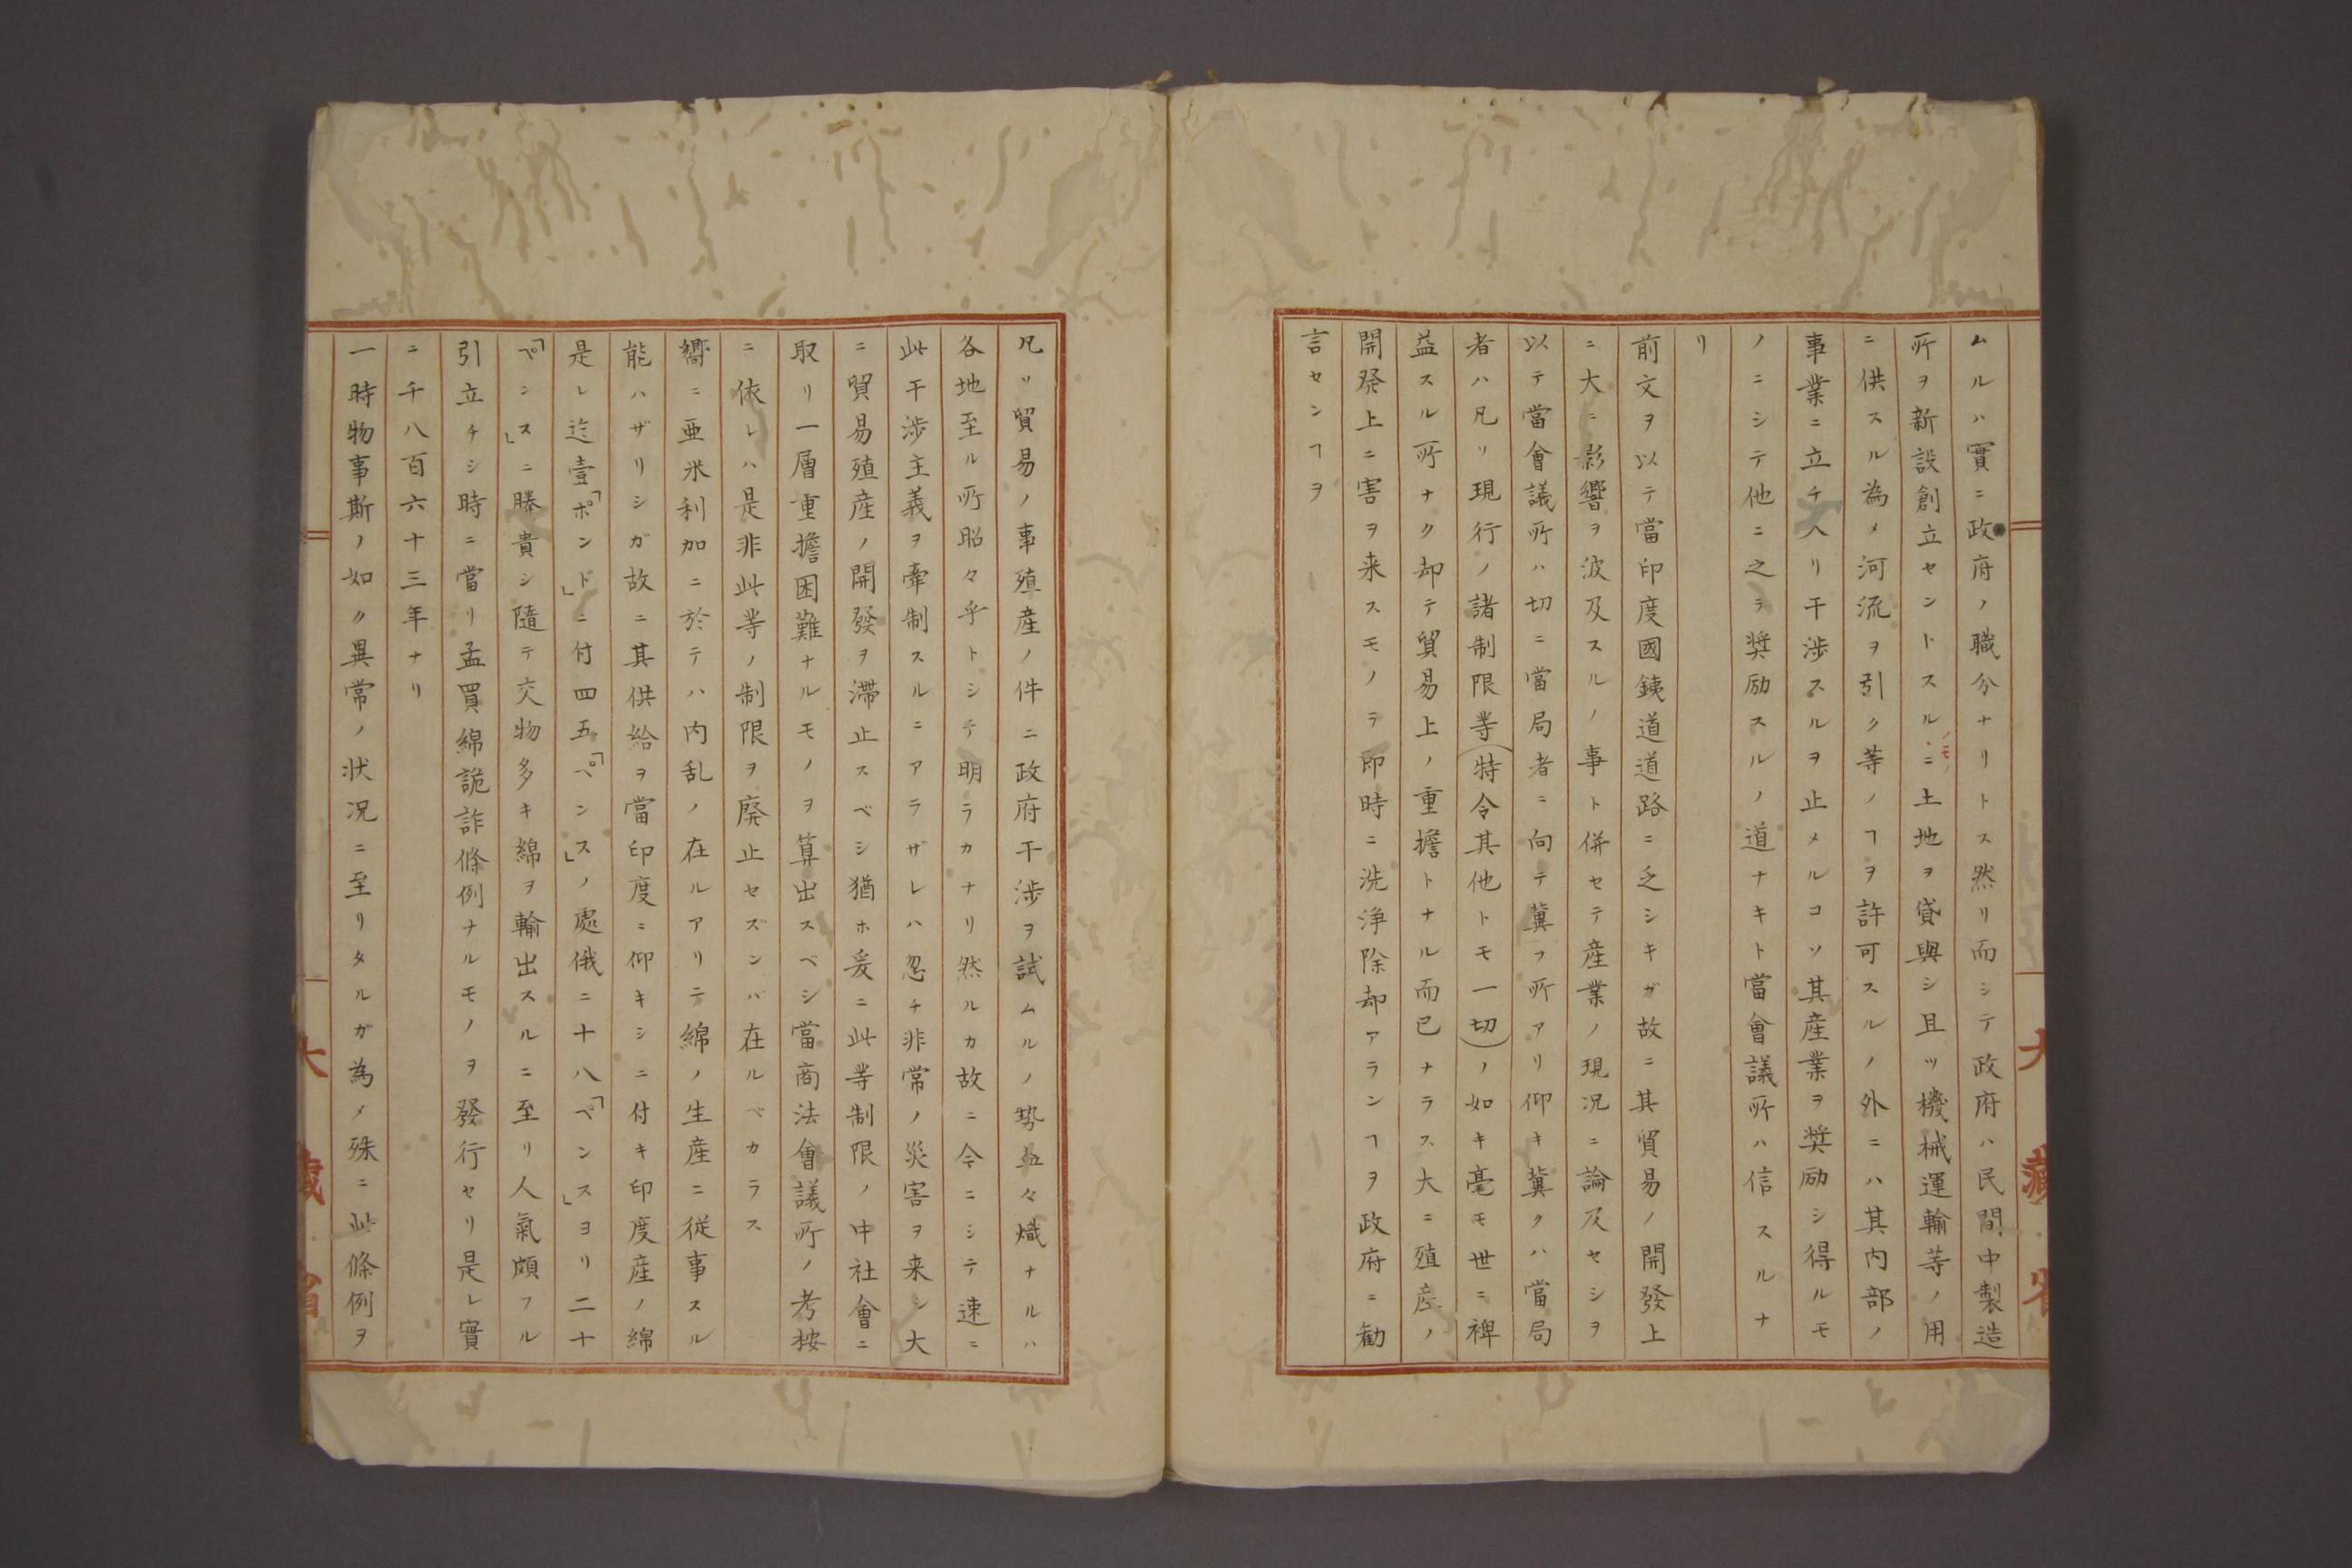 ムルハ實ニ政府ノ職分ナリトス然リ而シテ政府ハ民間中製造
所ヲ新設創立セントスルモノニ土地ヲ貸與シ且ツ機械運輸等ノ用
ニ供スル為メ河流ヲ引ク等ノヿヲ許可スルノ外ニハ其内部ノ
事業ニ立チ入リ干渉スルヲ止メルコソ其産業ヲ奨励シ得ルモ
ノニシテ他ニ之ヲ奨励スルノ道ナキト當會議所ハ信スルナ
リ
前文ヲ以テ當印度國銕道道路ニ乏シキガ故ニ其貿易ノ開發上
ニ大ニ影響ヲ波及スルノ事ト併セテ産業ノ現况ニ論及セシヲ
以テ當會議所ハ切ニ當局者ニ向テ冀フ所アリ仰キ冀クハ當局
者ハ凡ソ現行ノ諸制限等(特令其他トモ一切)ノ如キ毫モ世ニ裨
益スル所ナク却テ貿易上ノ重擔トナル而已ナラス大ニ殖産ノ
開発上ニ害ヲ来スモノヲ即時ニ洗浄除却アランヿヲ政府ニ勧
言センヿヲ
凡ソ貿易ノ事殖産ノ件ニ政府干渉ヲ試ムルノ勢益々熾ナルハ
各地至ル所昭々乎トシテ明ラカナリ然ルカ故ニ今ニシテ速ニ
此干渉主義ヲ牽制スルニアラザレハ忽チ非常ノ災害ヲ来シ大
ニ貿易殖産ノ開發ヲ滞止スベシ猶ホ爰ニ此等制限ノ中社會ニ
取リ一層重擔困難ナルモノヲ算出スベシ當商法會議所ノ考按
ニ依レハ是非此等ノ制限ヲ廃止セズンバ在ルベカラス
嚮ニ亜米利加ニ於テハ内乱ノ在ルアリテ綿ノ生産ニ従事スル
能ハザリシガ故ニ其供給ヲ當印度ニ仰キシニ付キ印度産ノ綿
是レ迄壹「ポンド」ニ付四五「ペンス」ノ處俄ニ十八「ペンス」ヨリ二十
「ペンス」ニ騰貴シ隨テ交物多キ綿ヲ輸出スルニ至リ人氣頗フル
引立チシ時ニ當リ孟買綿詭詐條例ナルモノヲ發行セリ是レ實
ニ千八百六十三年ナリ
一時物事斯ノ如ク異常ノ状况ニ至リタルガ為メ殊ニ此條例ヲ
大藏省